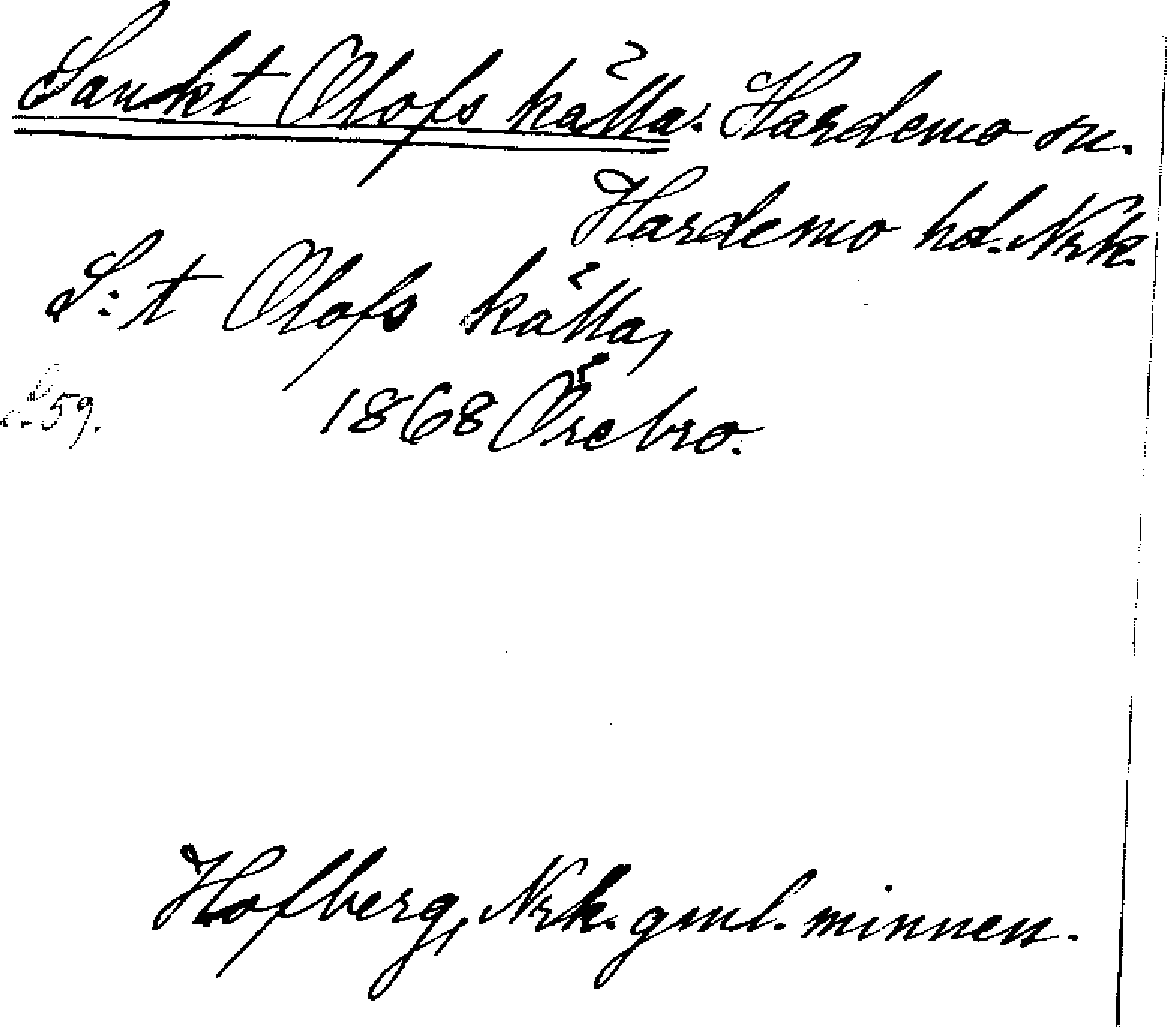 Sankt Olofs källa. Hardemo sn.
Hardemo hd. Nrk.
S:t Olofs källa,
s. 59. 1868 Örebro.
Hofberg, Nrk. gml. minnen.